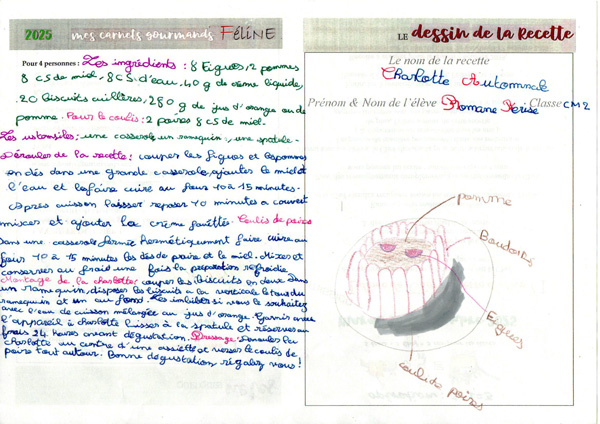 2025 mes carnets gourmands FÉLINE
Pour 4 personnes : Les ingrédients : 8 Figues, 2 pommes
8 cs de miel. 8 C.S. d'eau. 40 g de crème liquide,
20 Biscuits cuillères, 280 g de jus d'orange ou de
pomme. Pour le coulis : 2 poires 8 cs de miel.
Les ustensiles : une casserole un ramequin, une spatule.
Dérouler de la recette : couper les figues et les pommes
en dés dans une grande casserole, ajouter le miel et
l'eau et faire cuire au four 10 à 15 minutes.
Après cuisson laisser reposer 10 minutes a couvert
mixer et ajouter la crème fouettés. Coulis de poires
Dans une casserole fermée hermétiquement faire cuire au
four 10 à 15 minutes les dés de poire et le miel. Mixer et
conserver au frais une fois la préparation refroidie.
Montage de la charlotte : couper les biscuits en deux. Dans
un ramequin, disposer les biscuits à la verticale le tour du
ramequin et un au fond. Les imbiber si vous le souhaitez
avec l'eau de cuisson mélangée au jus d'orange. Garnir avec
l'appareil à charlotte lisser à la spatule et réserver au
frais 24 heures avant dégustation. Dressage : Démouler la
charlotte au centre d'une assiette et verser le coulis de
poires tout autour. Bonne dégustation régalez vous !
LE dessin de la Recette
Le nom de la recette
Charlotte Automnale
Prénom & Nom de l'élève Romane Classe CM2
pomme
Boudoirs
Figues
coulis de poires